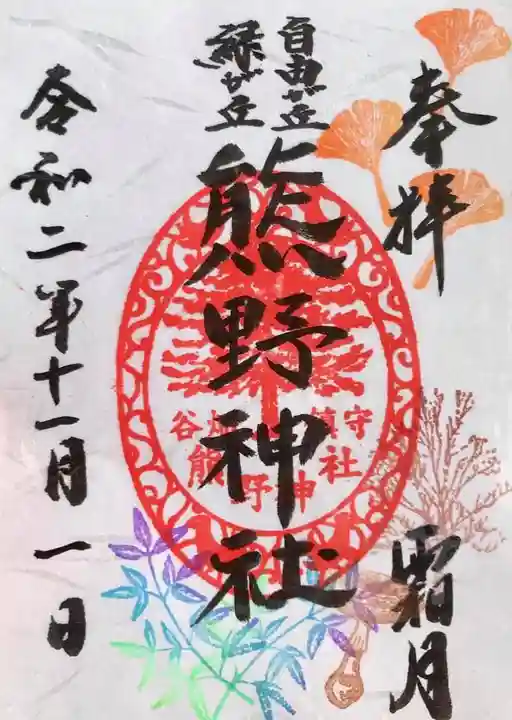 奉拝
霜月
自由が丘
緑が丘
熊野神社
谷畑 鎮守
熊野神社
令和二年十一月一日